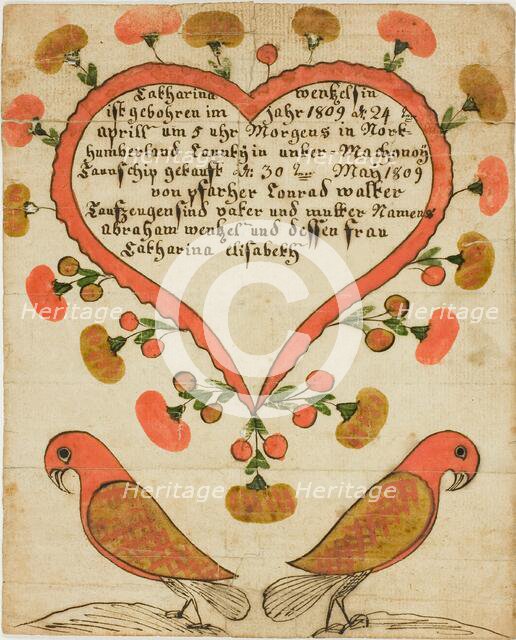 Catharina wentzelsin
ist gebohren im jahr 1809 dn 24 ten
aprill um 5 uhr Morgens in Nort-
humberland Caunty in unter-Machonoÿ
Taunschip getauft dn 30 ten May 1809
von pfarher Conrad walter
Taufzeugen sind vater und mutter Namens
abraham wentzel und dessen frau
Catharina elisabeth
Heritage Heritage Heritage
Heritage Heritage